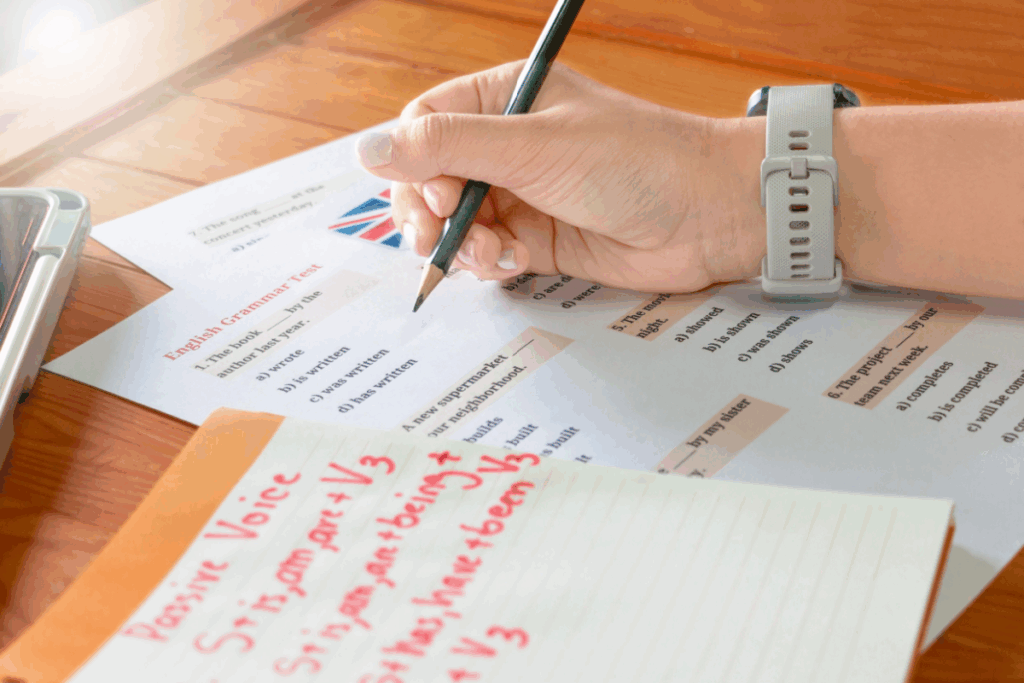 7. The song ____ at the
concert yesterday.
English Grammar Test
1. The book ____ by the
author last year.
a) wrote
b) is written
c) was written
d) has written
A new supermarket ____
our neighborhood.
builds
built
built
c) are
d) were
5. The
night.
a) showed
b) is shown
c) was shown
d) shows
____ by my sister
6. The project ____ by our
team next week.
a) completes
b) is completed
c) will be
d)
Passive Voice
S+is,am,are+V3
S+is,am,are+being+
V3
S+has,have+been
+V3